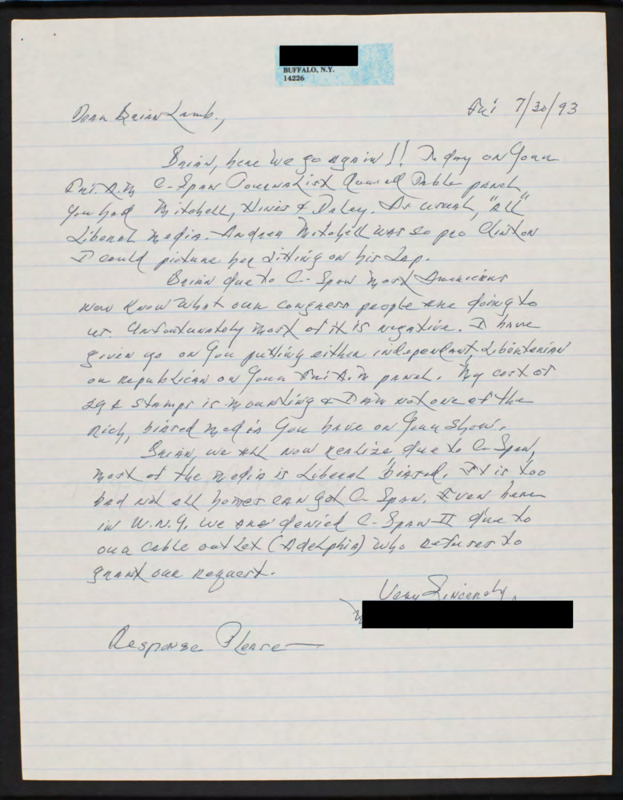 BUFFALO, N.Y.
14226
Dear Brian Lamb,
Fri 7/30/93
Brian, here we go again!! Today on your
Fri. A.M C-Span Journalist Round Table panel,
you had Mitchell, Hines & Daley. As usual, "All"
Liberal media. Andrea Mitchell was so pro Clinton
I could picture her sitting on his lap.
Brian due to C-Span most Americans
now know what our congress people are doing to
us. Unfortunately most of it is negative. I have
given up on you putting either independent, Libertarian
or republican on your Fri A.M panel. My cost of
29¢ stamps is mounting & I am not one of the
rich, biased media you have on your show.
Brian, we all now realize due to C-Span,
most of the media is Liberal biased. It is too
bad not all homes can get C-Span. Even here
in W.N.Y. we are denied C-Span II due to
our cable outlet (Adelphia) who refuses to
grant our request.
Very Sincerely,
Response Please